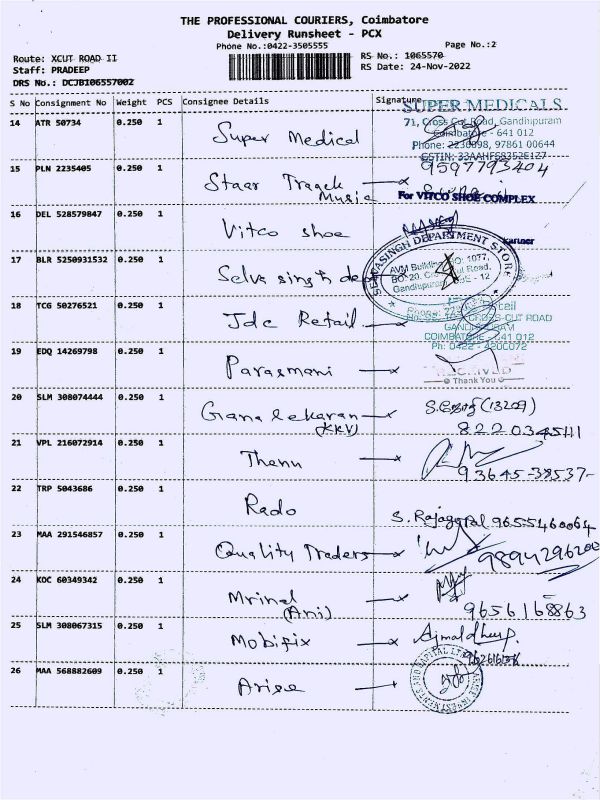 THE PROFESSIONAL COURIERS, Coimbatore
Delivery Runsheet - PCX
Phone No.:0422-3505555
Page No.:2
Route: XCUT ROAD II
RS No.: 1065570
Staff: PRADEEP
RS Date: 24-Nov-2022
DRS No.: DCJB106557002
S No Consignment No Weight PCS Consignee Details Signature
SUPER MEDICALS
14 ATR 50734 0.250 1 Super Medical
71, Cross Cut Road, Gandhipuram
Coimbatore - 641 012
Phone: 2230898, 97861 00644
GSTIN: 33AAHFS8352E1Z7
15 PLN 2235405 0.250 1 Staar Track Music
9597793404
For VITCO SHOE COMPLEX
16 DEL 528579847 0.250 1 Vitco shoe
Partner
SELVASINGH DEPARTMENT STORE
17 BLR 5250931532 0.250 1 Selva singh dep
AVM Building NO: 1077,
Gandhipuram, CBE - 12
18 TCG 50276521 0.250 1 Jdc Retail
CROSS-CUT ROAD
GANDHIPURAM
COIMBATORE - 641 012
Ph: 0422 - 4200072
19 EDQ 14269798 0.250 1 Parasmani
RECEIVED
Thank You
20 SLM 308074444 0.250 1 Gana lekaran (KKV)
(13209)
8220345111
21 VPL 216072914 0.250 1 Thenu
93645-38537-
22 TRP 5043686 0.250 1 Rado
S. Rajagopal 9655460064
23 MAA 291546857 0.250 1 Quality Traders
9894296202
24 KOC 60349342 0.250 1 Mrinal (Ani)
9656168863
25 SLM 308067315 0.250 1 Mobifix
26 MAA 568882609 0.250 1 Arise